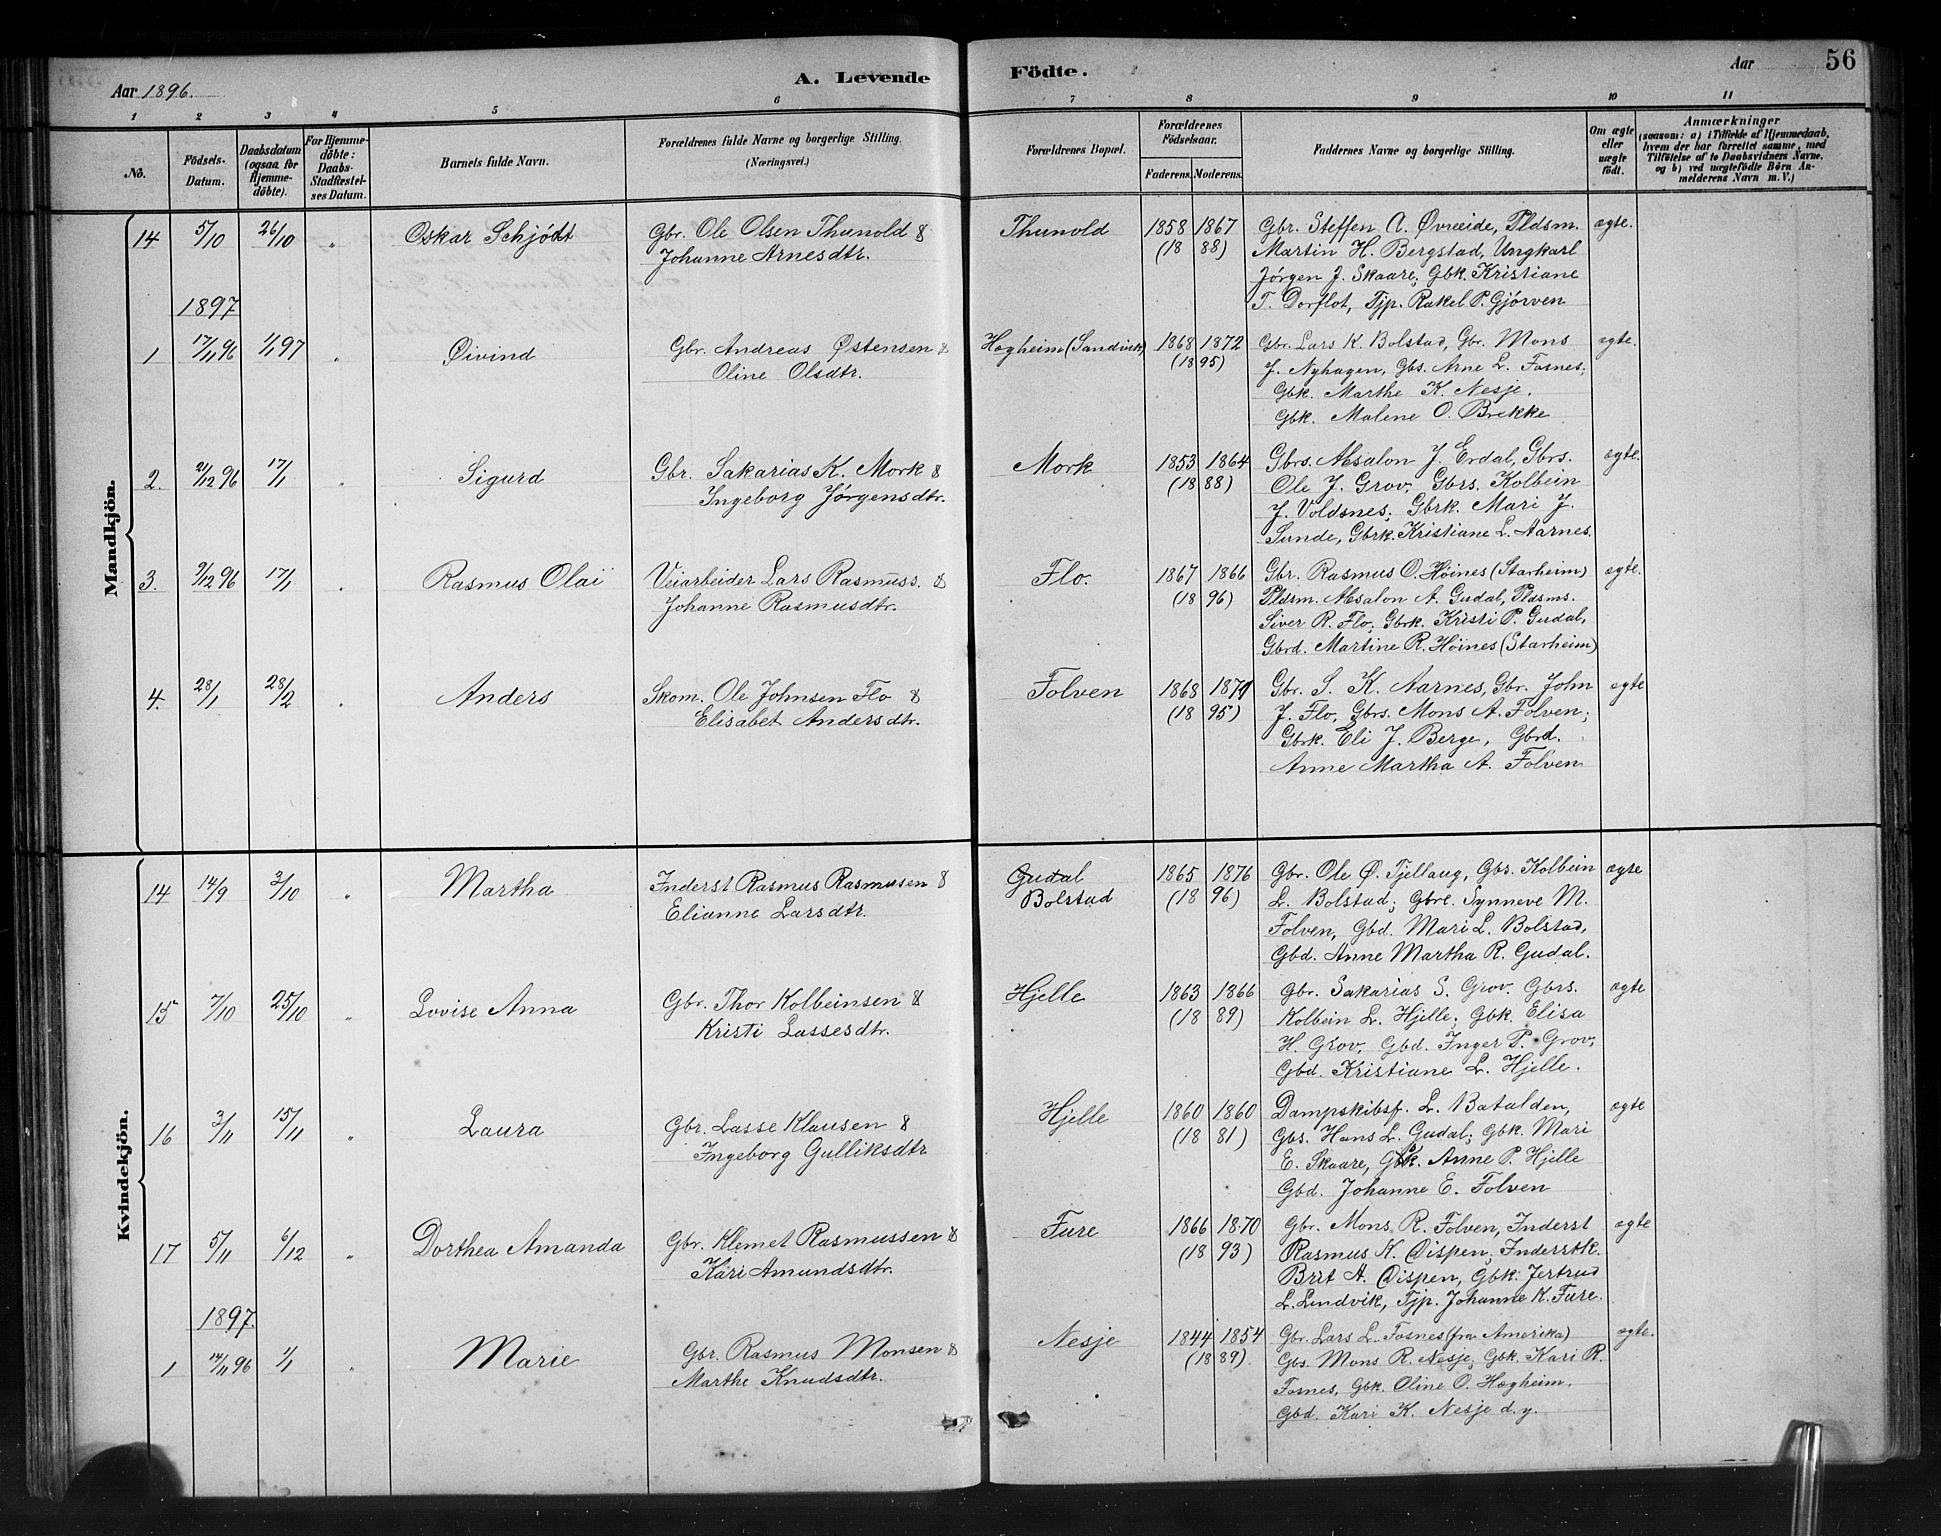 56
A. Levende Födte.
Aar 1896.
Aar
1 2 3 4 5 6 7 8 9 10 11
No.
Födsels-Datum.
Daabsdatum (ogsaa for Hjemmedöbte).
For Hjemmedöbte: Daabs-Stadfæstelses Datum.
Barnets fulde Navn.
Forældrenes fulde Navne og borgerlige Stilling. (Næringsvei.)
Forældrenes Bopæl.
Forældrenes Födselsaar.
Faderens. Moderens.
Faddernes Navne og borgerlige Stilling.
Om ægte eller uægte födt.
Anmærkninger
(saasom: a) i Tilfælde af Hjemmedaab,
hvem der har forrettet samme, med
Tilföielse af to Daabsvidners Navne,
og b) ved uægtefödte Börn An-
melderens Navn m.V.)
Mandkjön.
14 5/10 26/10 " Oskar Schjödt Gbr. Ole Olsen Thunold & Thunold 1858 1867 Gbr. Steffen A. Øvreeide, Pldsm. ægte.
Johanne Arnesdtr. (18 88) Martin H. Bergstad, Ungkarl
Jørgen J. Skaare; Gbk. Kristiane
T. Dorflot, Tjp. Rakel P. Gjørven
1897
1 17/11 96 1/1 97 " Øivind Gbr. Andreas Østensen & Hægheim (Sandvik) 1868 1872 Gbr. Lars K. Bolstad, Gbr. Mons ægte.
Oline Olsdtr. (18 95) J. Nyhagen, Gbs. Arne L. Fosnes;
Gbk. Marthe K. Nesje.
Gbk. Malene O. Brekke
2. 21/12 96 17/1 " Sigurd Gbr. Sakarias K. Mork & Mork 1853 1864 Gbrs. Absalon J. Erdal, Gbrs. ægte.
Ingeborg Jørgensdtr. (18 88) Ole J. Grov, Gbrs. Kolbein
J. Voldsnes; Gbrk. Mari J.
Sunde, Gbrk. Kristiane L. Aarnes.
3. 9/12 96 17/1 " Rasmus Olai Veiarbeider Lars Rasmuss. & Flo. 1867 1866 Gbr. Rasmus O. Höines (Starheim) ægte.
Johanne Rasmusdtr. (18 96) Pldsm. Absalon A. Gudal, Pldsms.
Siver R. Flo; Gbrk. Kristi P. Gudal,
Gbrd. Martine R. Höines (Starheim)
4. 28/1 28/2 " Anders Skom. Ole Johnsen Flo & Folven 1868 Gbr. S. K. Aarnes, Gbr. John ægte
Elisabet Andersdtr. (18 95) J. Flo, Gbrs. Mons A. Folven;
Gbrk. Eli J. Berge, Gbrd.
Anne Martha A. Folven
Kvindekjön.
14 14/9 3/10 " Martha Inderst Rasmus Rasmusen & Gudal 1865 1876 Gbr. Ole Ø. Tjellaug, Gbs. Kolbein ægte
Elianne Larsdtr. Bolstad (18 96) L. Bolstad; Gbre. Synneve M.
Folven, Gbd. Mari L. Bolstad,
Gbd. Anne Martha R. Gudal.
15 7/10 25/10 " Lovise Anna Gbr. Thor Kolbeinsen & Hjelle 1863 1866 Gbr. Sakarias S. Grov. Gbrs. ægte
Kristi Lassesdtr. (18 89) Kolbein L. Hjelle; Gbk. Elisa
H. Grov, Gbd. Inger P. Grov,
Gbd. Kristiane L. Hjelle.
16 3/11 15/11 " Laura Gbr. Lasse Klausen & Hjelle 1860 1860 Dampskibsf. L. Batalden, ægte
Ingeborg Gulliksdtr (18 81) Gbs. Hans L. Gudal; Gbk. Mari
E. Skaare, Gbk. Anne P. Hjelle
Gbd. Johanne E. Folven
17 5/11 6/12 " Dorthea Amanda Gbr. Klemet Rasmussen & Fure 1866 1870 Gbr. Mons R. Folven, Inderst ægte
Kari Amundsdtr. (18 93) Rasmus K. Dispen; Inderstk.
Brit A. Dispen, Gbk. Jertrud
L. Lundvik, Tjp. Johanne K. Fure.
1897.
1 14/11 96 1/1 " Marie Gbr. Rasmus Monsen & Nesje 1844 1854 Gbr. Lars L. Fosnes (fra Amerika) ægte.
Marthe Knudsdtr. (18 89) Gbs Mons R. Nesje; Gbk. Kari R.
Fosnes, Gbk. Oline O. Hægheim.
Gbd. Kari K. Nesje d.y.